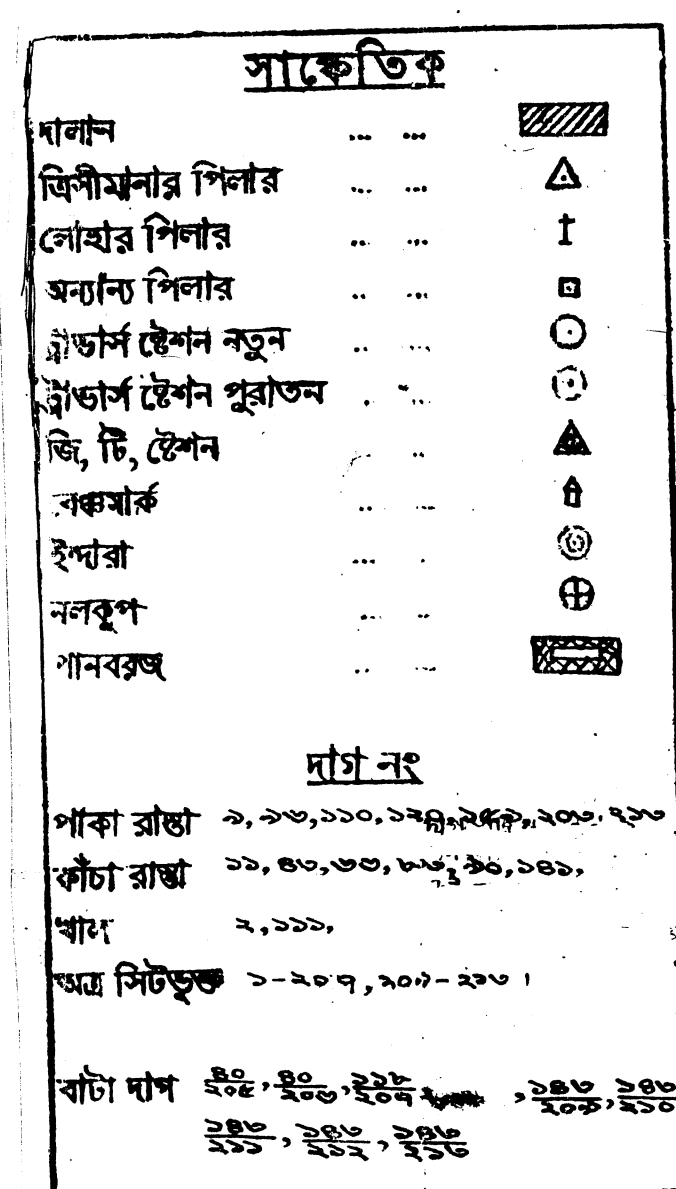 সাঙ্কেতিক
দালান ... ...
ত্রিসীমানার পিলার ... ...
লোহার পিলার ... ...
অন্যান্য পিলার ... ...
ট্রাভার্স ষ্টেশন নতুন ... ...
ট্রাভার্স ষ্টেশন পুরাতন ... ...
জি, টি, ষ্টেশন ... ...
বেঞ্চমার্ক ... ...
ইন্দারা ... ...
নলকূপ ... ...
পানবরজ ... ...
দাগ নং
পাকা রাস্তা ৯, ১১০, ২১৩
কাঁচা রাস্তা ১১, ৪৩, ১৪১,
খাল ২, ১১১,
অত্র সিটভুক্ত ১-২০৭, ২১৩।
বাটা দাগ ৪০/২০৫, ৪০/২০৬, ১১৮/২০৭, ১৪৬/২০৯, ১৪৬/২১০
১৪৬/২১১, ১৪৬/২১২, ১৪৬/২১৩